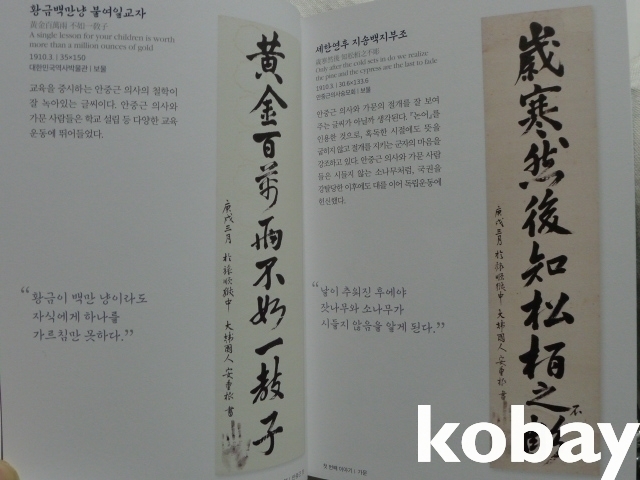 황금백만냥 불여일교자
黃金百萬兩 不如一敎子
A single lesson for your children is worth
more than a million ounces of gold
1910.3 | 35×150
대한민국역사박물관 | 보물
교육을 중시하는 안중근 의사의 철학이
잘 녹아있는 글씨이다. 안중근 의사와
가문 사람들은 학교 설립 등 다양한 교육
운동에 뛰어들었다.
“황금이 백만 냥이라도
자식에게 하나를
가르침만 못하다.”
黃金百萬兩不如一敎子
庚戌三月 於旅順獄中 大韓國人 安重根 書
세한연후 지송백지부조
歲寒然後 知松栢之不彫
Only after the cold sets in do we realize
the pine and the cypress are the last to fade
1910.3 | 30.6×133.6
안중근의사숭모회 | 보물
안중근 의사와 가문의 절개를 잘 보여
주는 글씨가 아닐까 생각된다. 『논어』를
인용한 것으로, 혹독한 시절에도 뜻을
굽히지 않고 절개를 지키는 군자의 마음을
강조하고 있다. 안중근 의사와 가문 사람
들은 시들지 않는 소나무처럼, 국권을
강탈당한 이후에도 대를 이어 독립운동에
헌신했다.
“날이 추워진 후에야
잣나무와 소나무가
시들지 않음을 알게 된다.”
歲寒然後知松栢之不彫
庚戌三月 於旅順獄中 大韓國人 安重根 書
첫 번째 이야기 | 가문
kobay